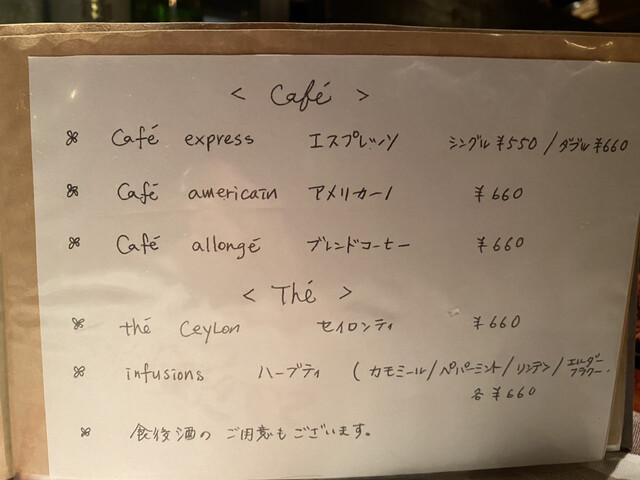 < Café >
Café express エスプレッソ シングル ¥550 / ダブル ¥660
Café americain アメリカーノ ¥660
Café allongé ブレンドコーヒー ¥660
< Thé >
thé Ceylon セイロンティ ¥660
infusions ハーブティ (カモミール/ペパーミント/リンデン/エルダーフラワー.
各 ¥660
食後酒の ご用意もございます。